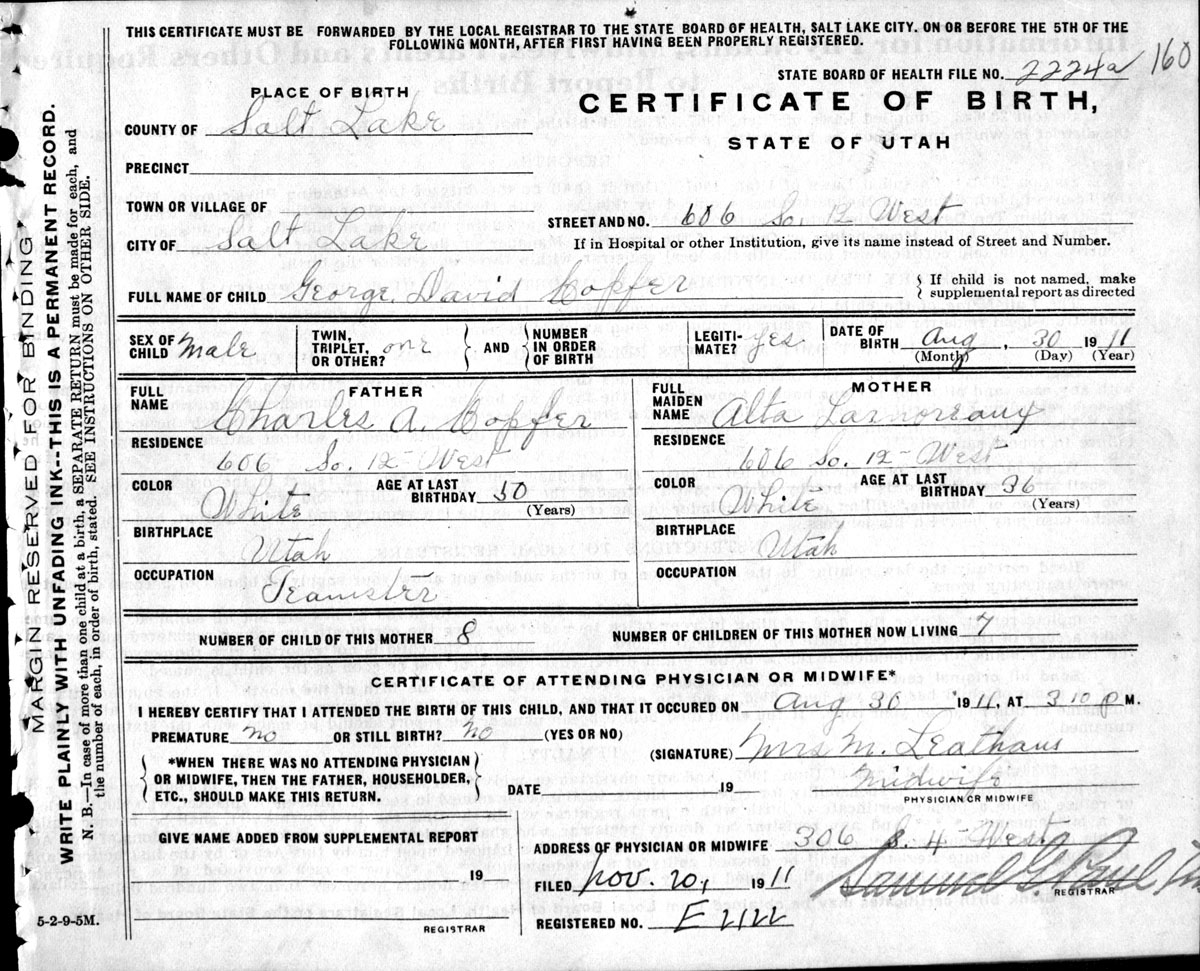 THIS CERTIFICATE MUST BE FORWARDED BY THE LOCAL REGISTRAR TO THE STATE BOARD OF HEALTH, SALT LAKE CITY. ON OR BEFORE THE 5TH OF THE
FOLLOWING MONTH, AFTER FIRST HAVING BEEN PROPERLY REGISTERED.
STATE BOARD OF HEALTH FILE NO. 2224a 160
PLACE OF BIRTH
CERTIFICATE OF BIRTH,
STATE OF UTAH
COUNTY OF Salt Lake
PRECINCT
TOWN OR VILLAGE OF
STREET AND NO. 606 So. 12 West
CITY OF Salt Lake
If in Hospital or other Institution, give its name instead of Street and Number.
FULL NAME OF CHILD George David Copfer
If child is not named, make
supplemental report as directed
SEX OF CHILD Male
TWIN, TRIPLET, OR OTHER? one
AND
NUMBER IN ORDER OF BIRTH
LEGITIMATE? yes
DATE OF BIRTH Aug, 30 1911
(Month) (Day) (Year)
FATHER
FULL NAME Charles A. Copfer
RESIDENCE
606 So. 12 West
COLOR White
AGE AT LAST BIRTHDAY 50
(Years)
BIRTHPLACE
Utah
OCCUPATION
Teamster
MOTHER
FULL MAIDEN NAME Alta Lamoreaux
RESIDENCE
606 So. 12 West
COLOR White
AGE AT LAST BIRTHDAY 36
(Years)
BIRTHPLACE Utah
OCCUPATION
NUMBER OF CHILD OF THIS MOTHER 8
NUMBER OF CHILDREN OF THIS MOTHER NOW LIVING 7
CERTIFICATE OF ATTENDING PHYSICIAN OR MIDWIFE*
I HEREBY CERTIFY THAT I ATTENDED THE BIRTH OF THIS CHILD, AND THAT IT OCCURED ON Aug 30 1911, AT 3.10 P M.
PREMATURE no OR STILL BIRTH? no (YES OR NO)
(SIGNATURE) Mrs M.
*WHEN THERE WAS NO ATTENDING PHYSICIAN
OR MIDWIFE, THEN THE FATHER, HOUSEHOLDER,
ETC., SHOULD MAKE THIS RETURN.
DATE 19
Midwife
PHYSICIAN OR MIDWIFE
GIVE NAME ADDED FROM SUPPLEMENTAL REPORT
19
REGISTRAR
ADDRESS OF PHYSICIAN OR MIDWIFE 306 S. 4 West
FILED Nov. 20, 1911
Samuel G. Paul
REGISTRAR
REGISTERED NO. E 2122
5-2-9-5M.
MARGIN RESERVED FOR BINDING
WRITE PLAINLY WITH UNFADING INK---THIS IS A PERMANENT RECORD.
N. B.—In case of more than one child at a birth, a SEPARATE RETURN must be made for each, and
the number of each, in order of birth, stated. SEE INSTRUCTIONS ON OTHER SIDE.